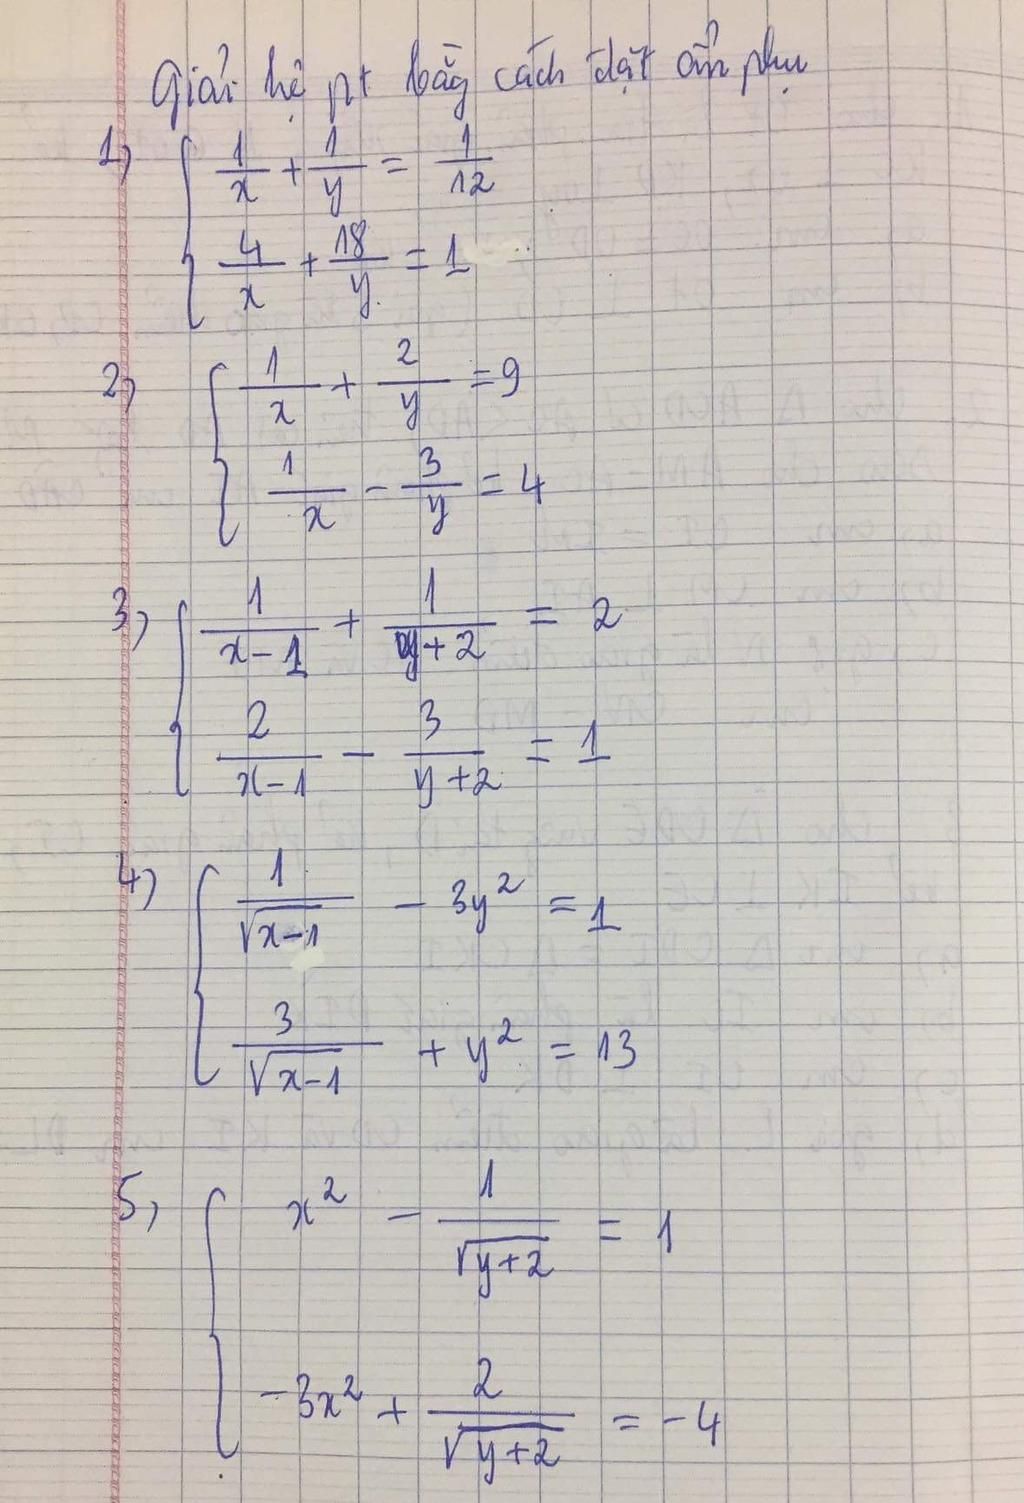 Giải hệ pt bằg cách đặt ẩn phụ
1) { 1/x + 1/y = 1/12
4/x + 18/y = 1
2) { 1/x + 2/y = 9
1/x - 3/y = 4
3) { 1/(x-1) + 1/(y+2) = 2
2/(x-1) - 3/(y+2) = 1
4) { 1/√(x-1) - 3y² = 1
3/√(x-1) + y² = 13
5) { x² - 1/√(y+2) = 1
-3x² + 2/√(y+2) = -4